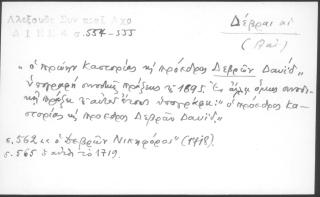 Ἀλεξούδη Συν. πράξ. Ἀχρ.
Δ Ι Ε Ε Ε σ. 554-555
Δέβραι αἱ
(Παλ.)
"ὁ πρώην Καστορίας κὴ πρόεδρος Δεβρῶν Δανιήλ"
ὑπογραφὴ συνοδικῆς πράξεως τῷ 1695. Ἐν ἄλλῃ ὅμως συνοδι-
κῇ πράξει τοῦ αὐτοῦ ἔτους ὑπογράφει: "ὁ πρόεδρος Κα-
στορίας κὴ πρόεδρος Δεβρῶν Δανιήλ."
σ. 562 "ὁ Δεβρῶν Νικηφόρος" (1718).
σ. 565 ὁ αὐτὸς τὸ 1719.